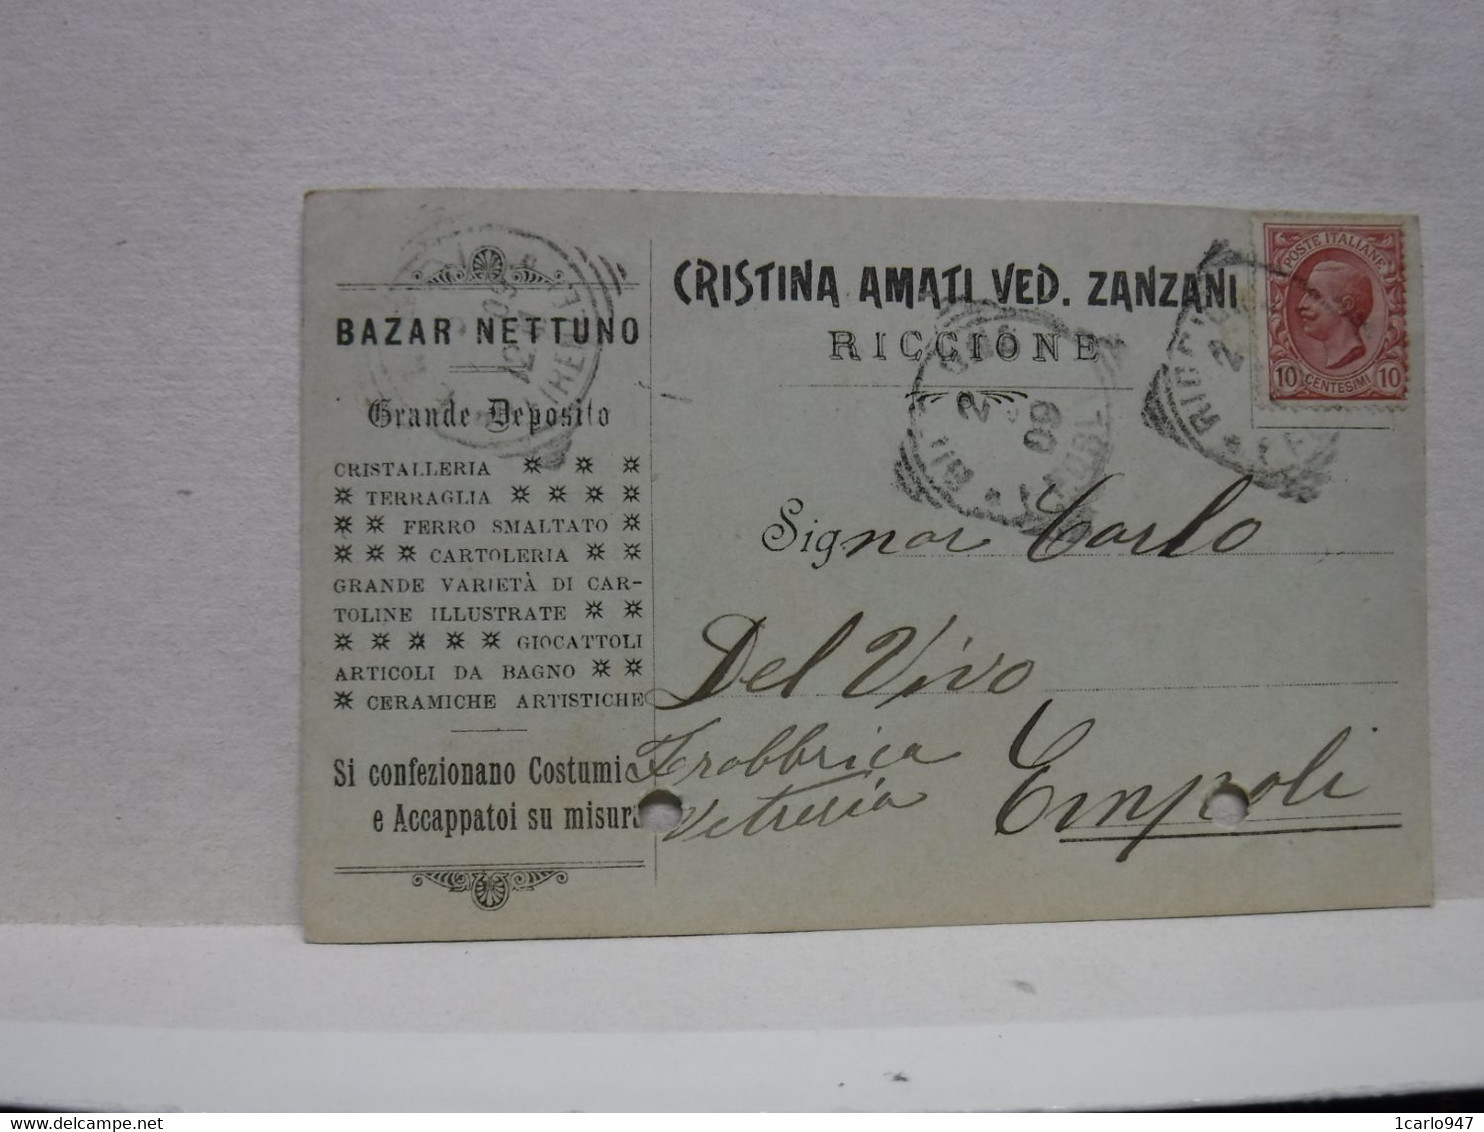 BAZAR NETTUNO
Grande Deposito
CRISTALLERIA
TERRAGLIA
FERRO SMALTATO
CARTOLERIA
GRANDE VARIETÀ DI CAR-
TOLINE ILLUSTRATE
GIOCATTOLI
ARTICOLI DA BAGNO
CERAMICHE ARTISTICHE
Si confezionano Costumi
e Accappatoi su misura
CRISTINA AMATI VED. ZANZANI
RICCIONE
POSTE ITALIANE
10 CENTESIMI 10
2
09
Signor Carlo
Del Vivo
Frabbrica
Vetreria
Empoli
delcampe.net
1carlo947